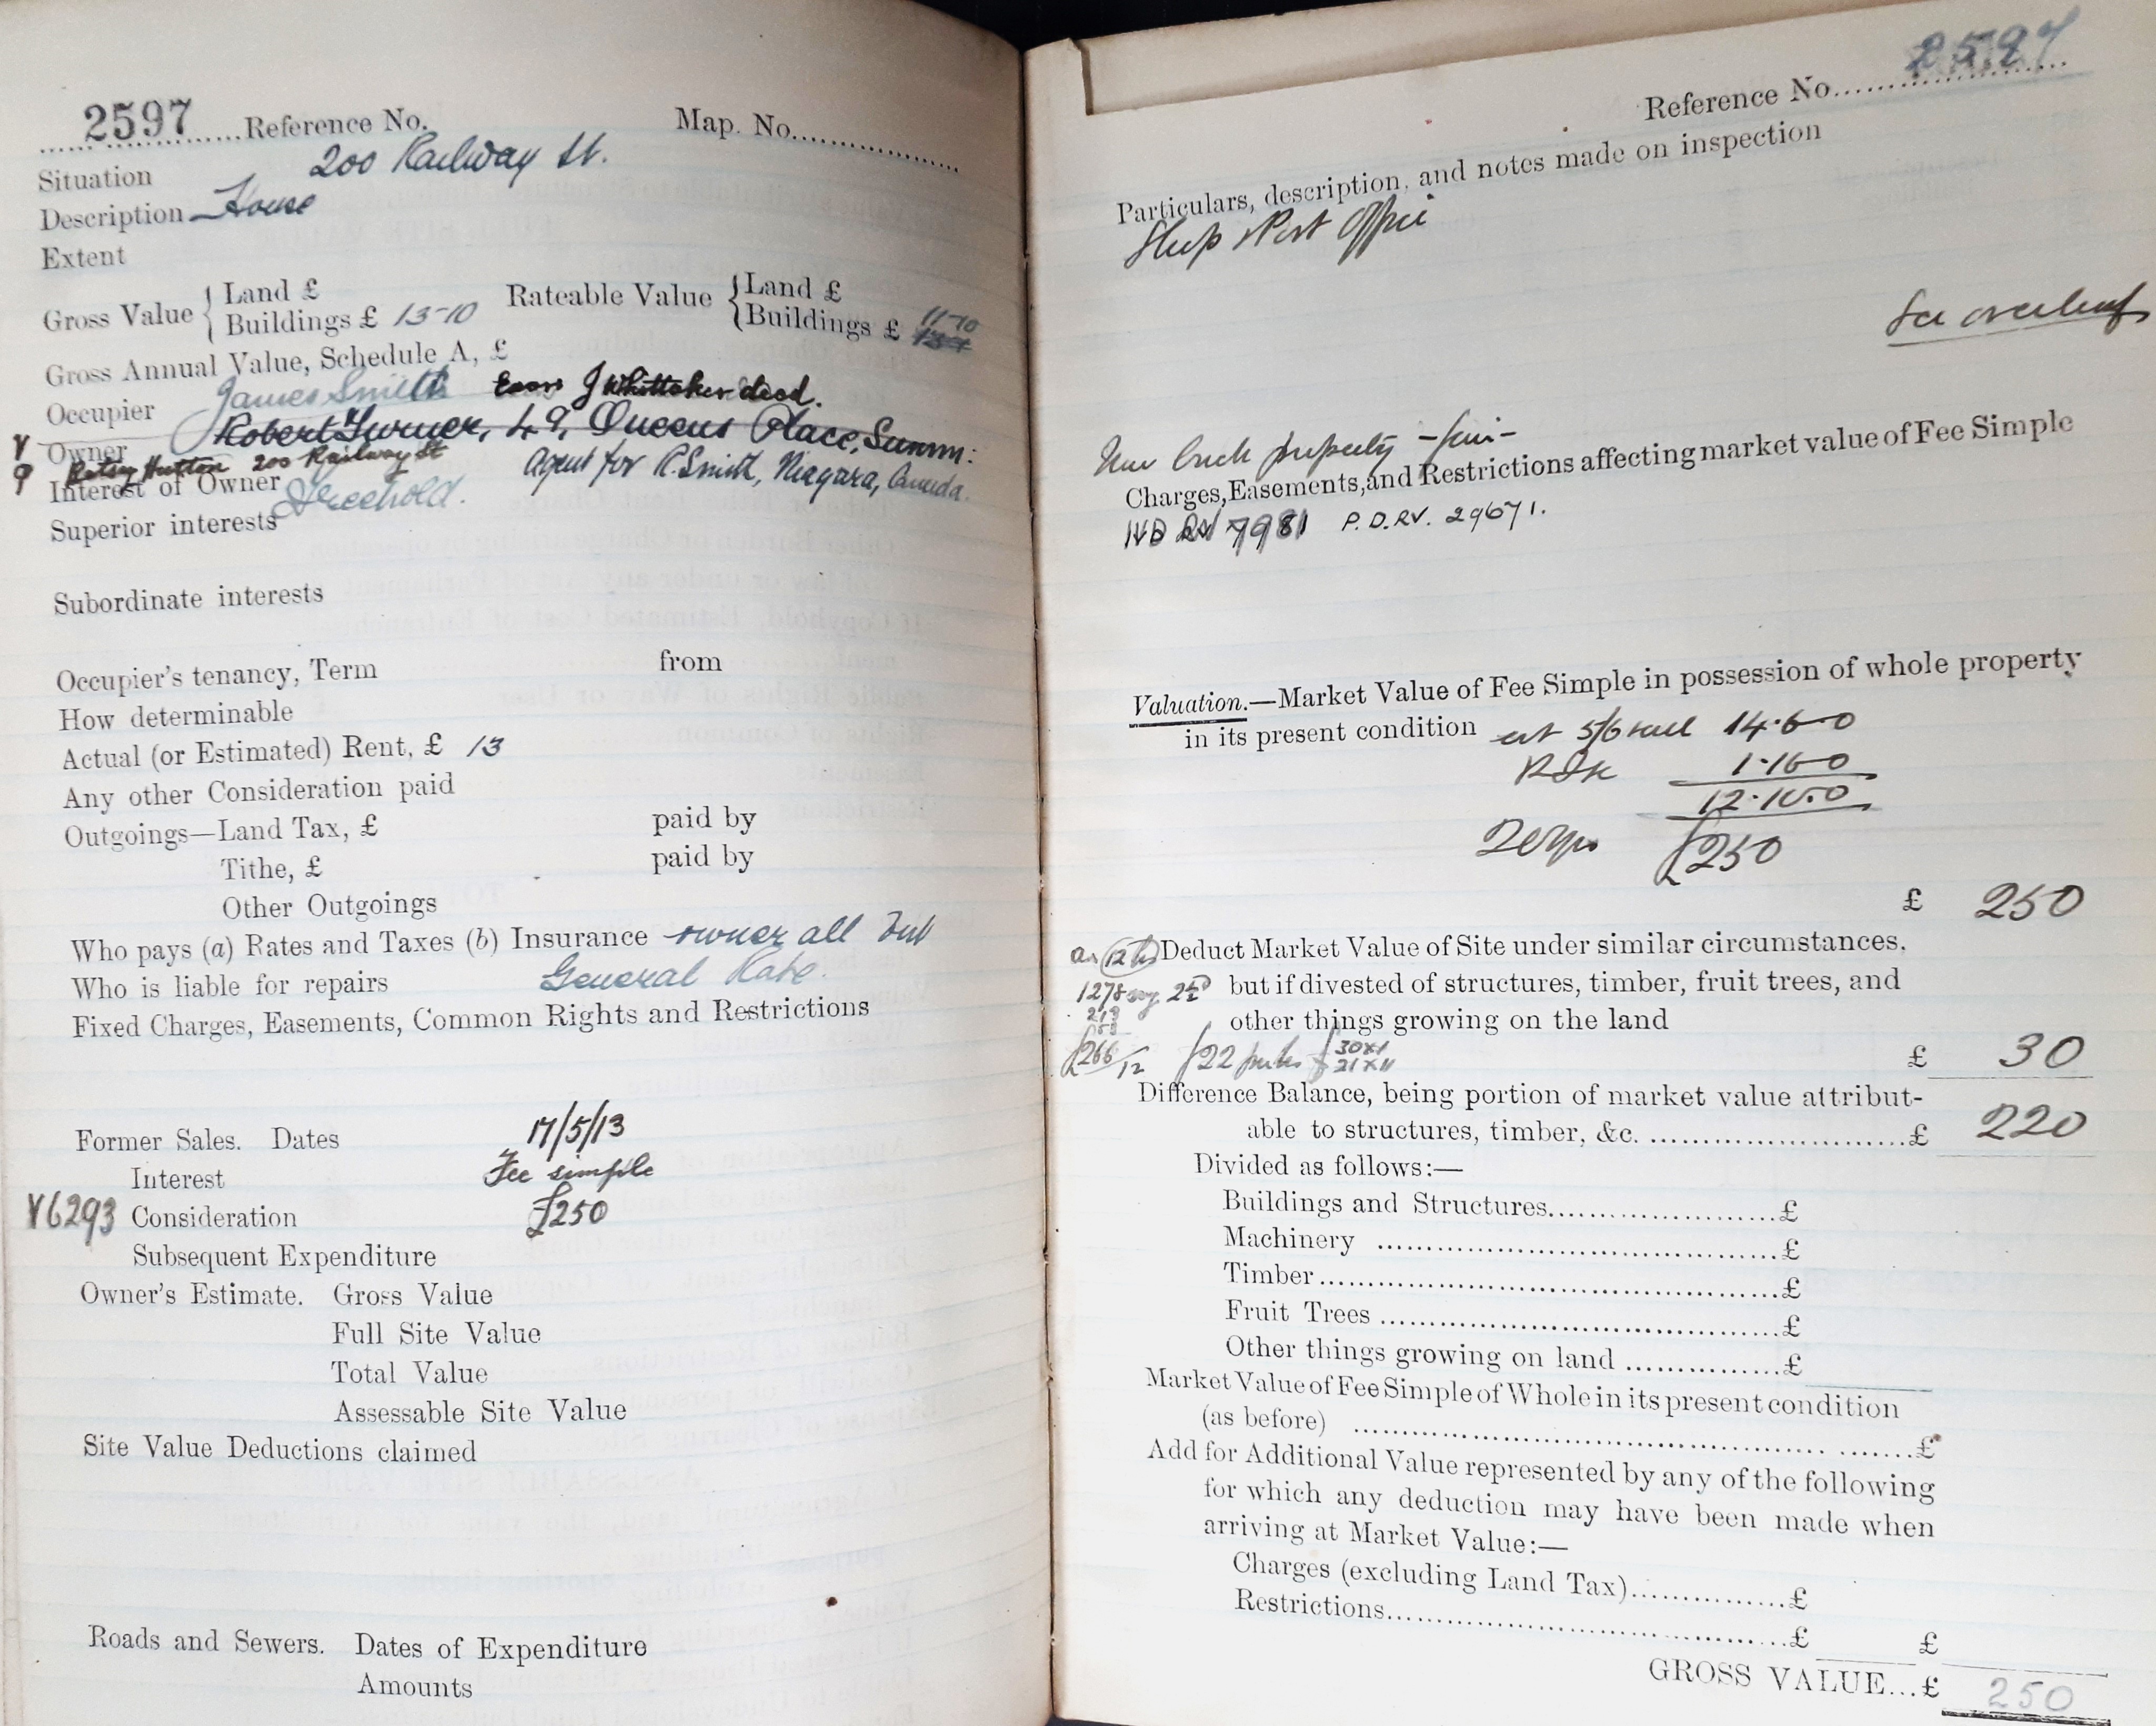 2597 Reference No. Map. No.
Situation 200 Railway St.
Description House
Extent
Gross Value { Land £
Buildings £ 13-10
Rateable Value { Land £
Buildings £ 11-10
Gross Annual Value, Schedule A, £
Occupier James Smith Exors J Whittaker decd.
Owner Robert Turner, 49, Queens Place, Summ:
Betsy Hutton 200 Railway St agent for R. Smith, Niagara, Canada.
Interest of Owner Freehold.
Superior interests
Subordinate interests
Occupier's tenancy, Term from
How determinable
Actual (or Estimated) Rent, £ 13
Any other Consideration paid
Outgoings—Land Tax, £ paid by
Tithe, £ paid by
Other Outgoings
Who pays (a) Rates and Taxes (b) Insurance owner all but
Who is liable for repairs General Rate.
Fixed Charges, Easements, Common Rights and Restrictions
Former Sales. Dates 17/5/13
Interest Fee simple
Y6293 Consideration £250
Subsequent Expenditure
Owner's Estimate. Gross Value
Full Site Value
Total Value
Assessable Site Value
Site Value Deductions claimed
Roads and Sewers. Dates of Expenditure
Amounts
2597
Reference No.
Particulars, description, and notes made on inspection
Shop & Post Office
See overleaf
New brick property - fair -
Charges, Easements, and Restrictions affecting market value of Fee Simple
7981 P.D.RV. 29671.
Valuation.—Market Value of Fee Simple in possession of whole property
in its present condition est 5/6 14.6.0
1.16.0
12.10.0
20 yrs £250
£ 250
Deduct Market Value of Site under similar circumstances,
1278 but if divested of structures, timber, fruit trees, and
other things growing on the land
£266/12 £22 30x1
21x11
£ 30
Difference Balance, being portion of market value attribut-
able to structures, timber, &c. £ 220
Divided as follows:—
Buildings and Structures £
Machinery £
Timber £
Fruit Trees £
Other things growing on land £
Market Value of Fee Simple of Whole in its present condition
(as before) £
Add for Additional Value represented by any of the following
for which any deduction may have been made when
arriving at Market Value:—
Charges (excluding Land Tax) £
Restrictions £ £
GROSS VALUE...£ 250